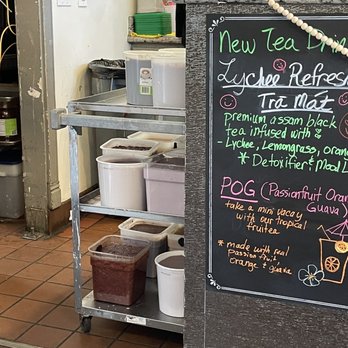 New Tea Drin
Lychee Refresh
Trà Mát
premium assam black
tea infused with
- Lychee, Lemongrass, oran
* Detoxifier & Mood L
POG (Passionfruit Oran
Guava)
take a mini vacay
with our tropical
fruitea
* made with real
Passion fruit,
orange & guava